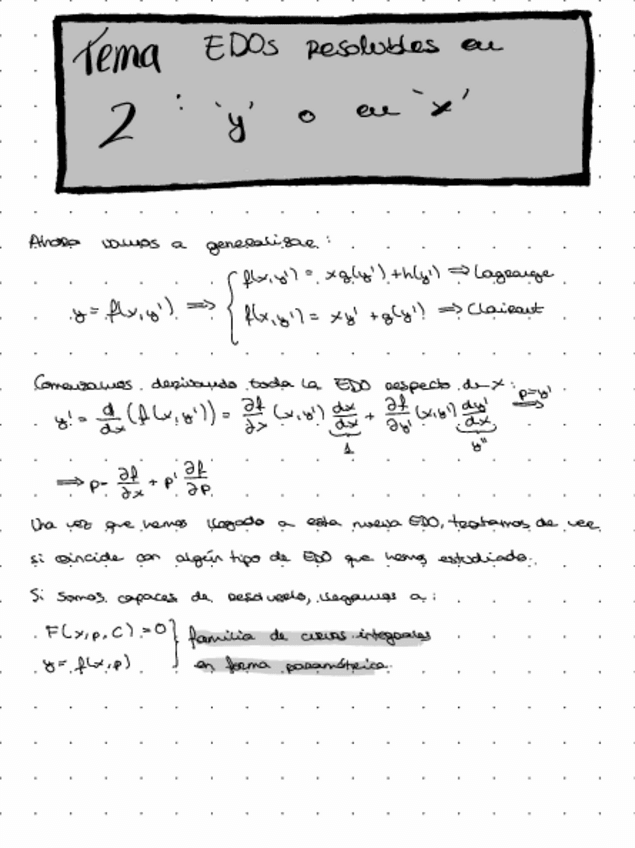 Tema 2: EDOs resolubles en
'y' o en 'x'
Ahora vamos a generalizar:
y = f(x,y') ⟹ { f(x,y') = xg(y') + h(y') ⟹ Lagrange
f(x,y') = xy' + g(y') ⟹ Clairaut
Comenzamos derivando toda la EDO respecto de x:
y' = d/dx (f(x,y')) = ∂f/∂x (x,y') dx/dx + ∂f/∂y' (x,y') dy'/dx ⟹ p=y'
1 y''
⟹ p = ∂f/∂x + p' ∂f/∂p
Una vez que hemos llegado a esta nueva EDO, tratamos de ver
si coincide con algún tipo de EDO que hemos estudiado.
Si somos capaces de resolverlo, llegamos a:
F(x,p,C) = 0 } familia de curvas integrales
y = f(x,p) en forma paramétrica.